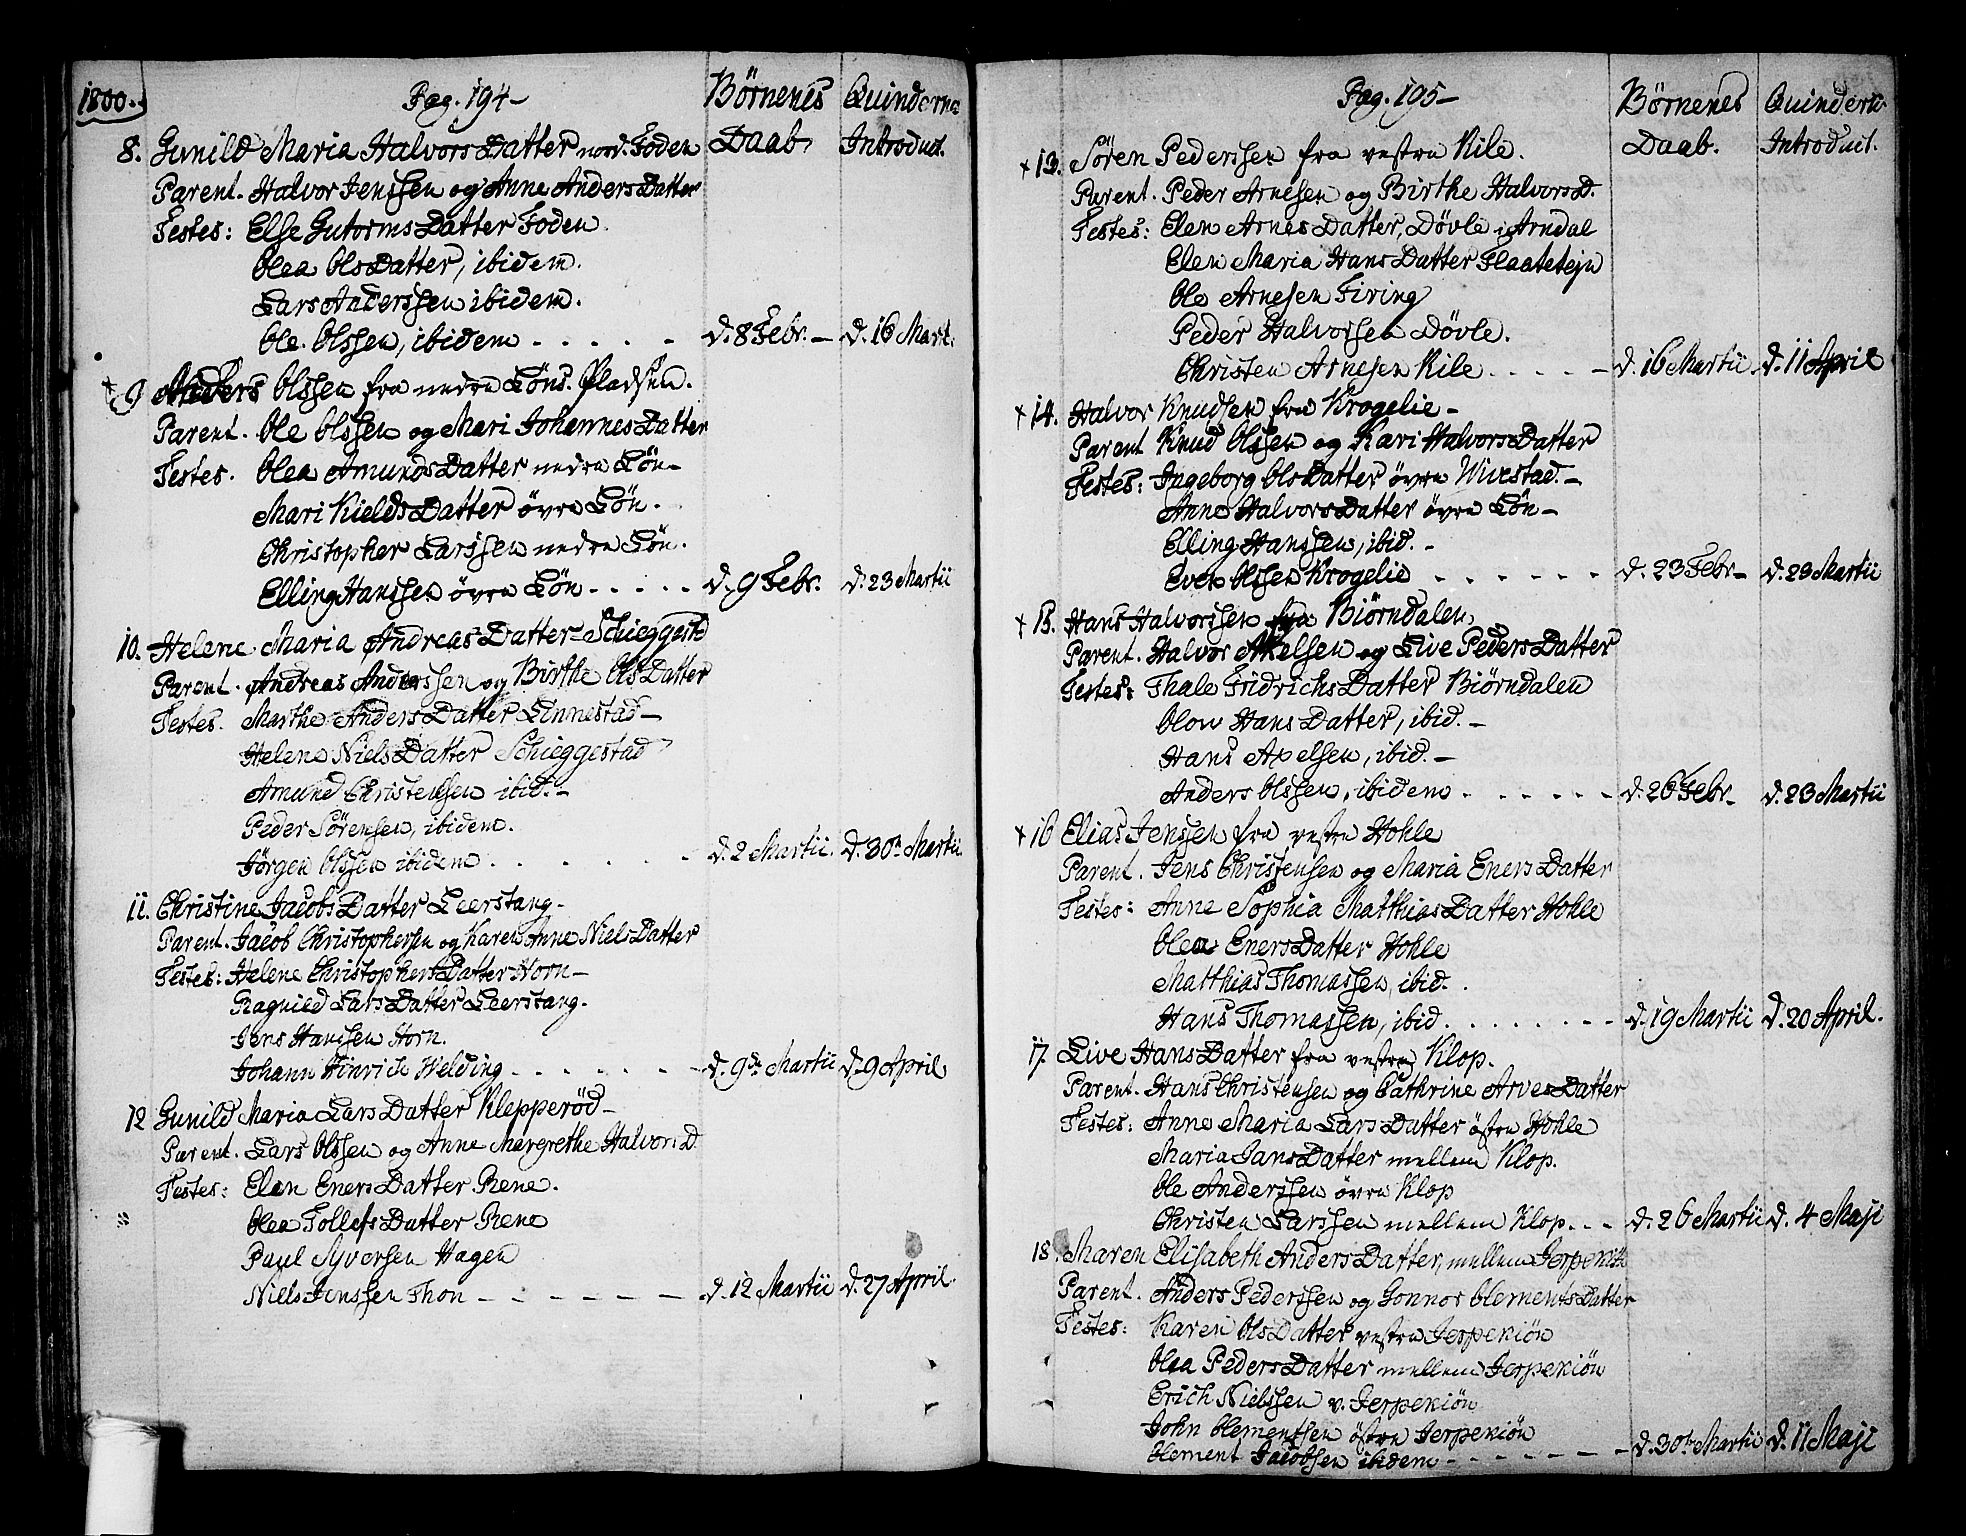 1800.
Pag. 194 -
Börnenes Daab,
Quinderne Introduct.
8. Gunild Maria Halvors Datter nord. Foden
Parent. Halvor Jenssen og Anne Anders Datter
Testes: Else Gutorms Datter Foden.
Olea Ols Datter, ibidem.
Lars Anderssen ibidem.
Ole Olssen, ibidem - - - - - d. 8 Febr. - d. 16 Mart.
+ 9 Anders Olssen fra nedre Löns. Pladsen.
Parent. Ole Olssen og Mari Johannes Datter
Testes. Olea Amunds Datter nedre Lön -
Mari Kields Datter övre Lön.
Christopher Larssen nedre Lön.
Elling Hanssen övre Lön - - - - - d. 9 Febr. d. 23 Martii
10. Helene Maria Andreas Datter - Schieggestd
Parent. Andreas Anderssen og Birthe Ols Datter
Testes. Marthe Anders Datter Linnestad -
Helene Niels Datter Schieggestad
Amund Christensen ibid. -
Peder Sörensen, ibidem.
Jörgen Olssen ibidem - - - - - d. 2 Martii. d. 30n Martii.
11. Christine Jacobs Datter Leerstang -
Parent. Jacob Christophersen og Karen Anne Niels Datter
Testes: Helene Christophers Datter Horn -
Ragnild Lars Datter Leerstang.
Jens Hanssen Horn.
Johann Hinrich Welding - - - - - d. 9de Martii d. 9 April
12 Gunild Maria Lars Datter Klopperöd -
Parent. Lars Olssen og Anne Margrethe Halvors D
Testes: Elen Eners Datter Rene.
Olea Tollefs Datter Rene
Paul Syversen Hagen
Niels Jenssen Thon - - - - - - d. 12 Martii d. 27 April.
Pag. 195 -
Börnenes Daab.
Quindern Introduct.
+ 13. Sören Pederssen fra vestre Kile.
Parent. Peder Arnesen og Birthe Halvors D.
Testes: Elen Arnes Datter, Dövle i Arndal
Elen Maria Hans Datter Flaatetejn
Ole Arnesen Firing
Peder Halvorssen Dövle.
Christen Arnesen Kile - - - - - d. 16 Martii d. 11 April
+ 14. Halvor Knudsen fra Krogelie -
Parent Knud Olssen og Kari Halvors Datter
Testes: Ingeborg Ols Datter övre Wivestad. -
Anne Halvors Datter övre Lön -
Elling Hanssen, ibid. -
Even Olssen Krogelie - - - - - - d. 23 Febr - d. 28 Martii
+ 15. Hans Halvorssen fra Biörndalen,
Parent. Halvor Akelsen og Live Peders Datter
Testes: Thale Fridrichs Datter Biörndalen
Olow Hans Datter, ibid. -
Hans Axelsen, ibid. -
Anders Olssen, ibidem - - - - - d. 26 Febr - d. 23 Martii
+ 16 Elias Jenssen fra vestre Hohle
Parent. Jens Christensen og Maria Eners Datter
Testes: Anne Sophia Matthias Datter Hohle
Olea Eners Datter Hohle
Matthias Thomassen, ibid. .
Hans Thomassen, ibid - - - - - d. 19 Martii d. 20 April.
17. Live Hans Datter fra vestre Klop.
Parent. Hans Christensen og Cathrine Arves Datter
Testes: Anne Maria Lars Datter östre Hohle
Maria Jans Datter mellem Klop.
Ole Anderssen övre Klop
Christen Larssen mellem Klop. - - d. 26 Martii d. 4 Maji
18. Maren Elisabeth Anders Datter, mellem Jerpekiö
Parent. Anders Pederssen og Gonnor Clements Datter
Testes: Karen Ols Datter vestre Jerpekiön
Olea Peders Datter mellem Jerpekiön
Erich Nielssen v. Jerpekiön
John Clementsen östre Jerpekiön
Clement Jacobsen ibidem - - - - - - d. 30te Martii d. 11 Maji